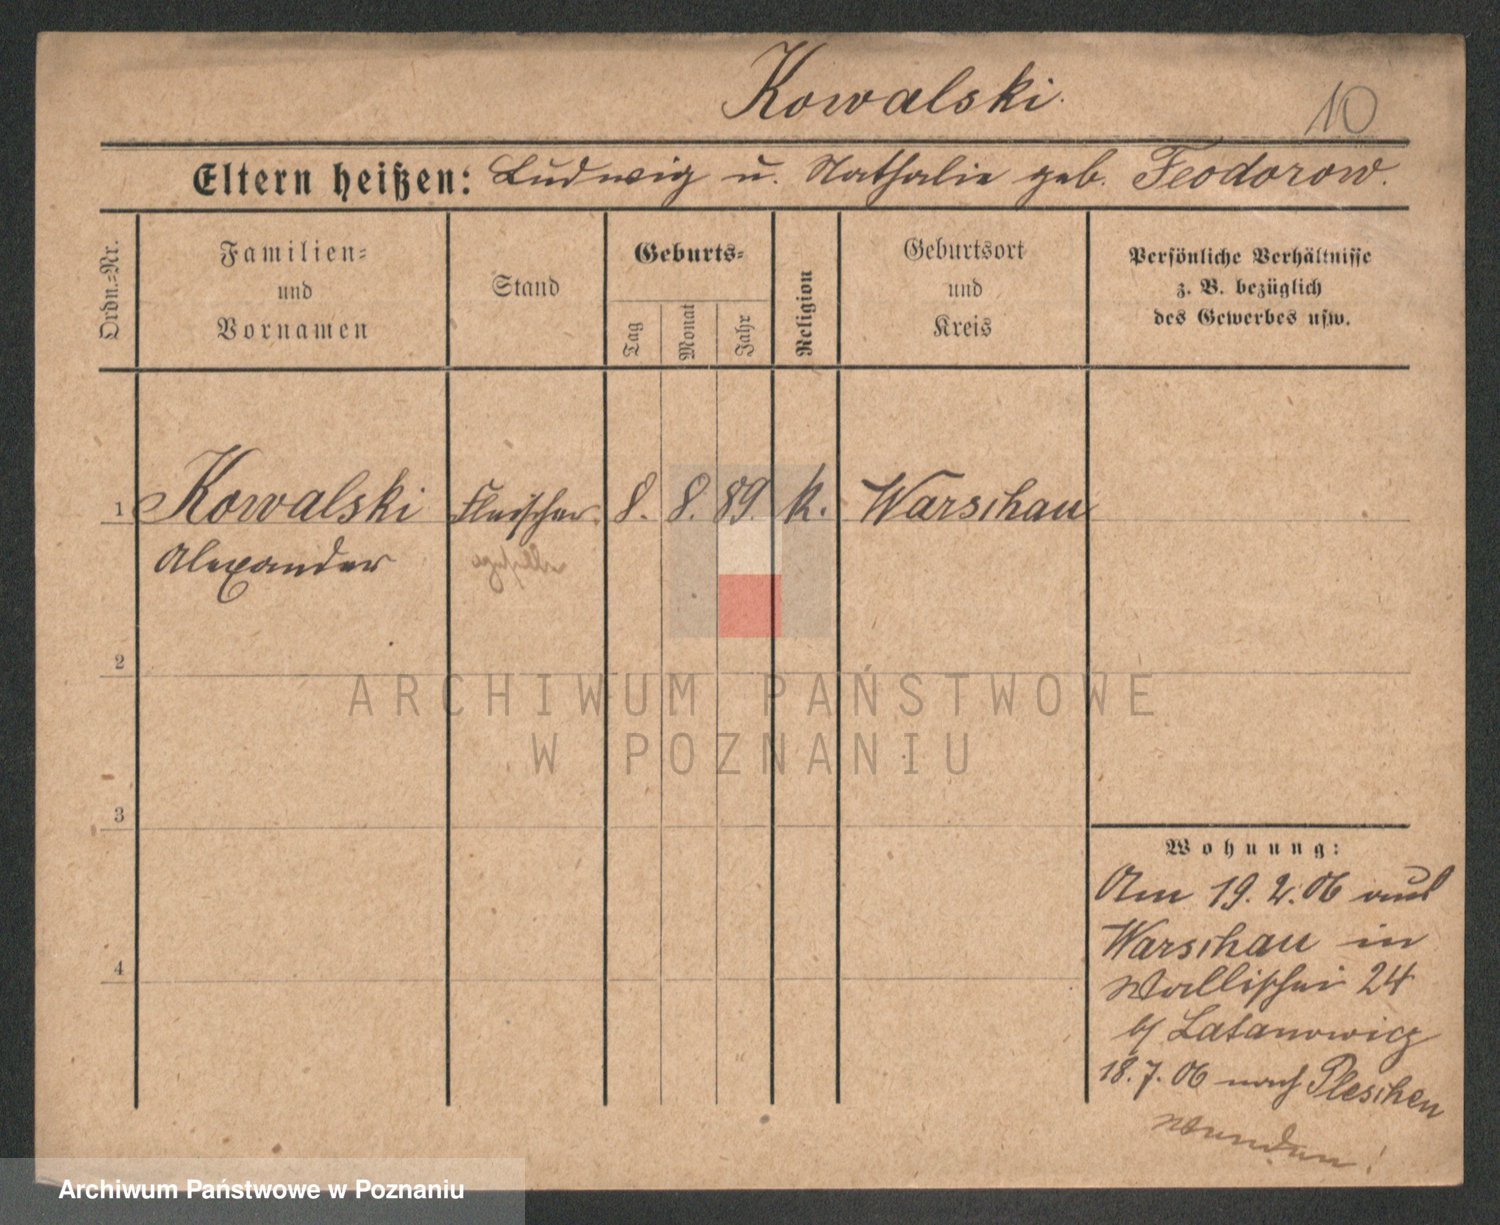 Kowalski.
10
Eltern heißen: Ludwig u. Nathalie geb. Feodorow.
Ordn.-Nr.
Familien-
und
Vornamen
Stand
Geburts-
Tag
Monat
Jahr
Religion
Geburtsort
und
Kreis
Persönliche Verhältnisse
z. B. bezüglich
des Gewerbes usw.
1 Kowalski Fleischer. 8. 8. 89. k. Warschau
Alexander
2
ARCHIWUM PAŃSTWOWE
W POZNANIU
3
Wohnung:
Am 19. 2. 06 aus
Warschau in
Wallischei 24
4
b/ Latanowicz
18. 7. 06 nach Pleschen
Wenden!
Archiwum Państwowe w Poznaniu